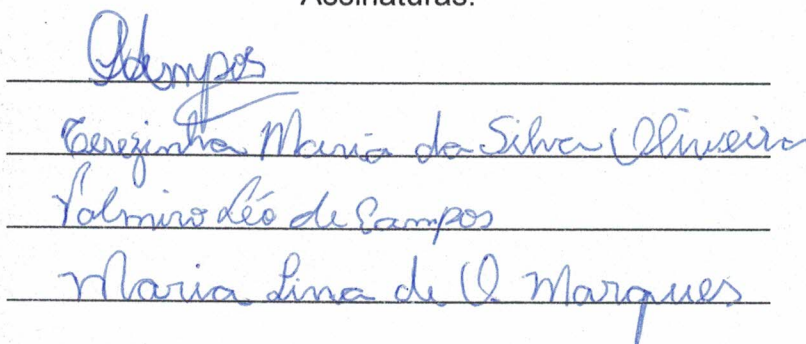 Assinaturas:
Terezinha Maria da Silva Oliveira
Palmiro Léo de Campos
Maria Lina de O Marques